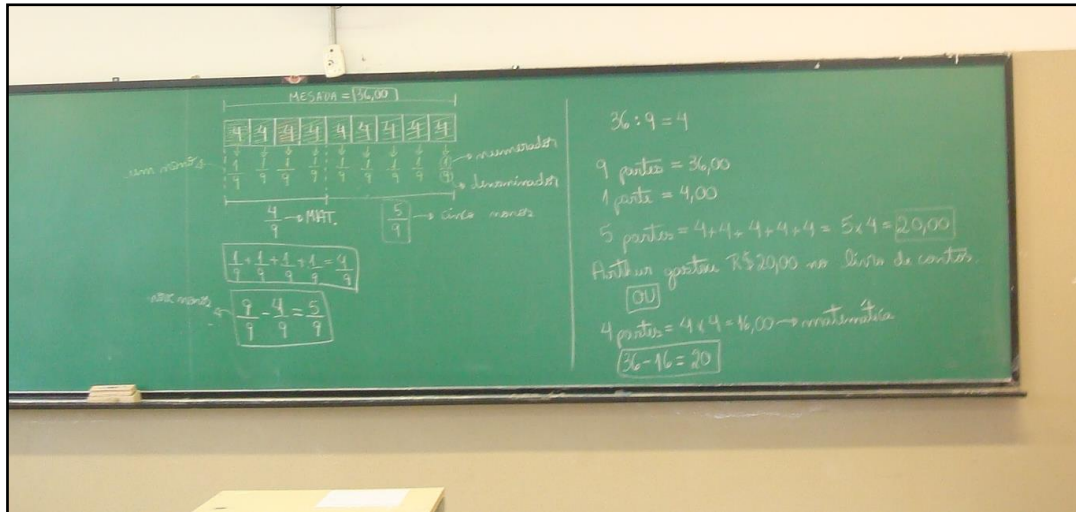 MESADA = 36,00
4 4 4 4 4 4 4 4 4
um nono 1/9 1/9 1/9 1/9 1/9 1/9 1/9 1/9 1/9 numerador
denominador
4/9 → MAT. 5/9 → cinco nonos
1/9 + 1/9 + 1/9 + 1/9 = 4/9
nove nonos
9/9 - 4/9 = 5/9
36 : 9 = 4
9 partes = 36,00
1 parte = 4,00
5 partes = 4 + 4 + 4 + 4 + 4 = 5 x 4 = 20,00
Arthur gastou R$ 20,00 no livro de contos.
OU
4 partes = 4 x 4 = 16,00 → matemática
36 - 16 = 20